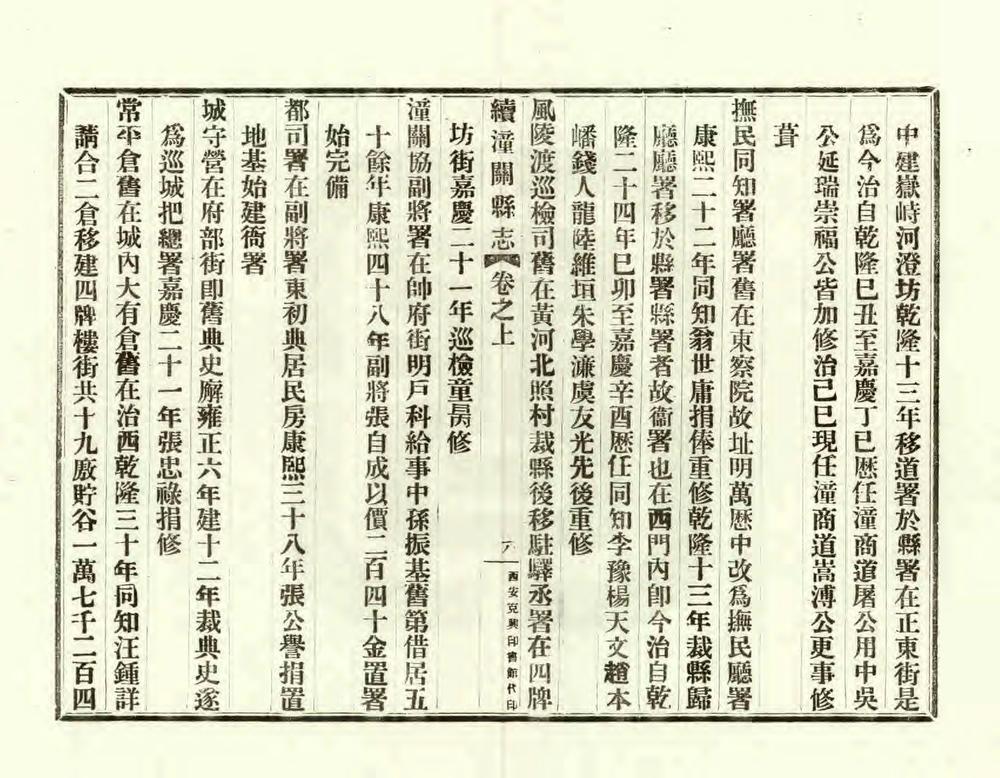 中建嶽峙河澄坊乾隆十三年移道署於縣署在正東街是
爲今治自乾隆巳丑至嘉慶丁巳歷任潼商道屠公用中吳
公延瑞崇福公皆加修治己巳現任潼商道嵩溥公更事修
葺
撫民同知署廳署舊在東察院故址明萬歷中改爲撫民廳署
康熙二十二年同知翁世庸捐俸重修乾隆十三年裁縣歸
廳廳署移於縣署縣署者故衞署也在西門內卽今治自乾
隆二十四年巳卯至嘉慶辛酉歷任同知李豫楊天文趙本
嶓錢人龍陸維垣朱學濂虞友光先後重修
風陵渡巡檢司舊在黃河北照村裁縣後移駐驛丞署在四牌
續潼關縣志 卷之上 六 西安克興印書館代印
坊街嘉慶二十一年巡檢童昺修
潼關協副將署在帥府街明戶科給事中孫振基舊第借居五
十餘年康熙四十八年副將張自成以價二百四十金置署
始完備
都司署在副將署東初典居民房康熙三十八年張公譽捐置
地基始建衙署
城守營在府部街卽舊典史廨雍正六年建十二年裁典史遂
爲巡城把總署嘉慶二十一年張忠祿捐修
常平倉舊在城內大有倉舊在治西乾隆三十年同知汪鍾詳
請合二倉移建四牌樓街共十九廒貯谷一萬七千二百四